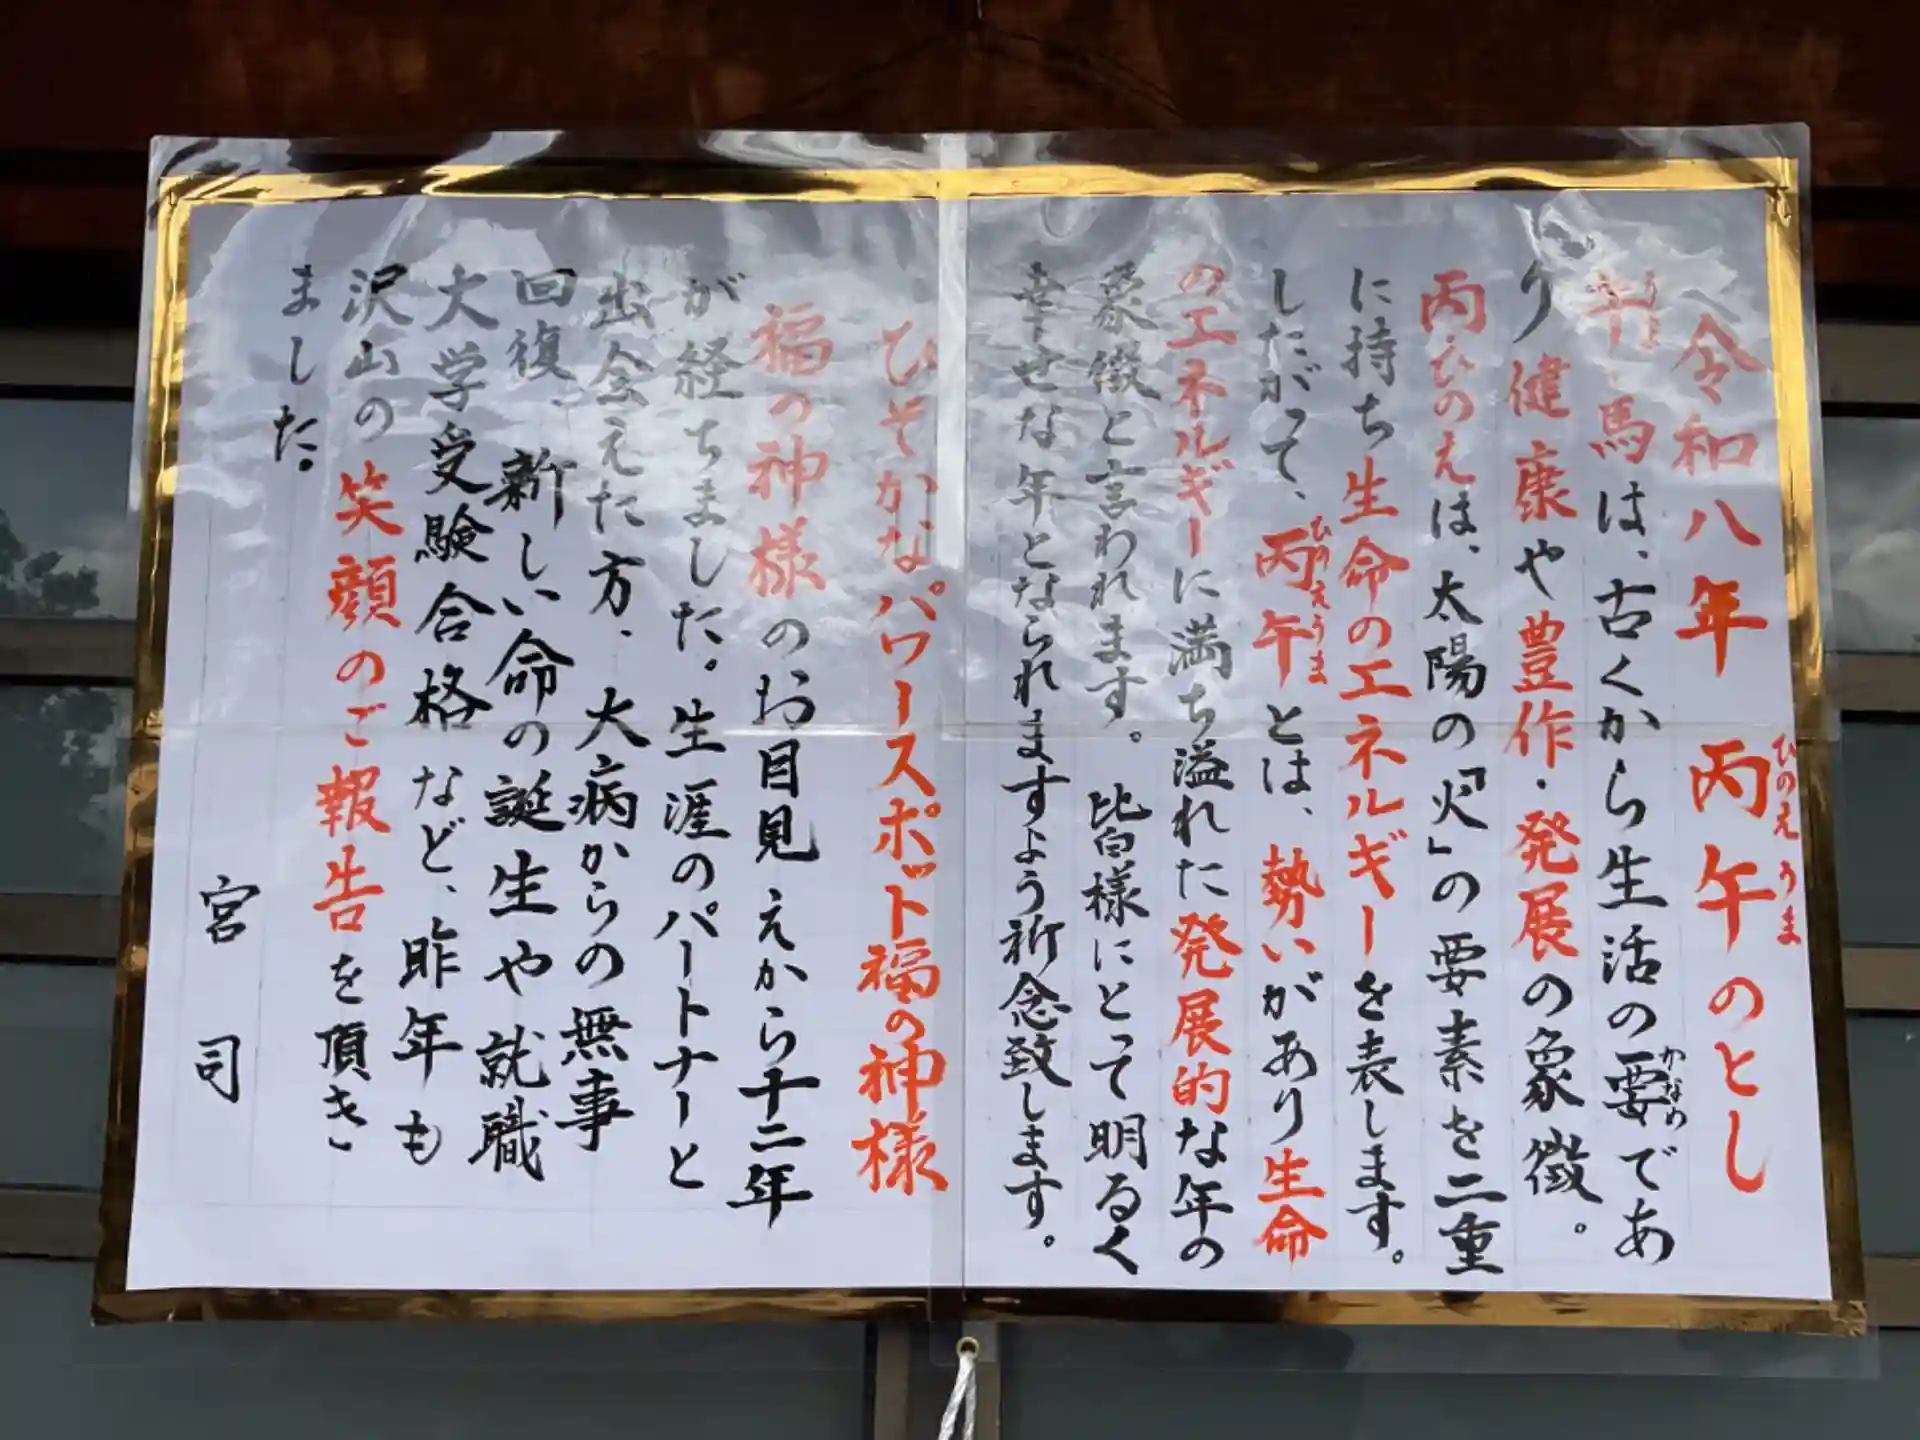 令和八年 丙午のとし
ひのえ うま
午・馬は、古くから生活の要であ
うま
かなめ
り健康や豊作・発展の象徴。
丙・ひのえは、太陽の「火」の要素を二重
に持ち生命のエネルギーを表します。
したがって、丙午とは、勢いがあり生命
ひのえうま
のエネルギーに満ち溢れた発展的な年の
象徴と言われます。皆様にとって明るく
幸せな年となられますよう祈念致します。
ひそかなパワースポット福の神様
福の神様のお目見えから十二年
が経ちました。生涯のパートナーと
出会えた方、大病からの無事
回復、新しい命の誕生や就職
大学受験合格など、昨年も
沢山の笑顔のご報告を頂き
ました。
宮司